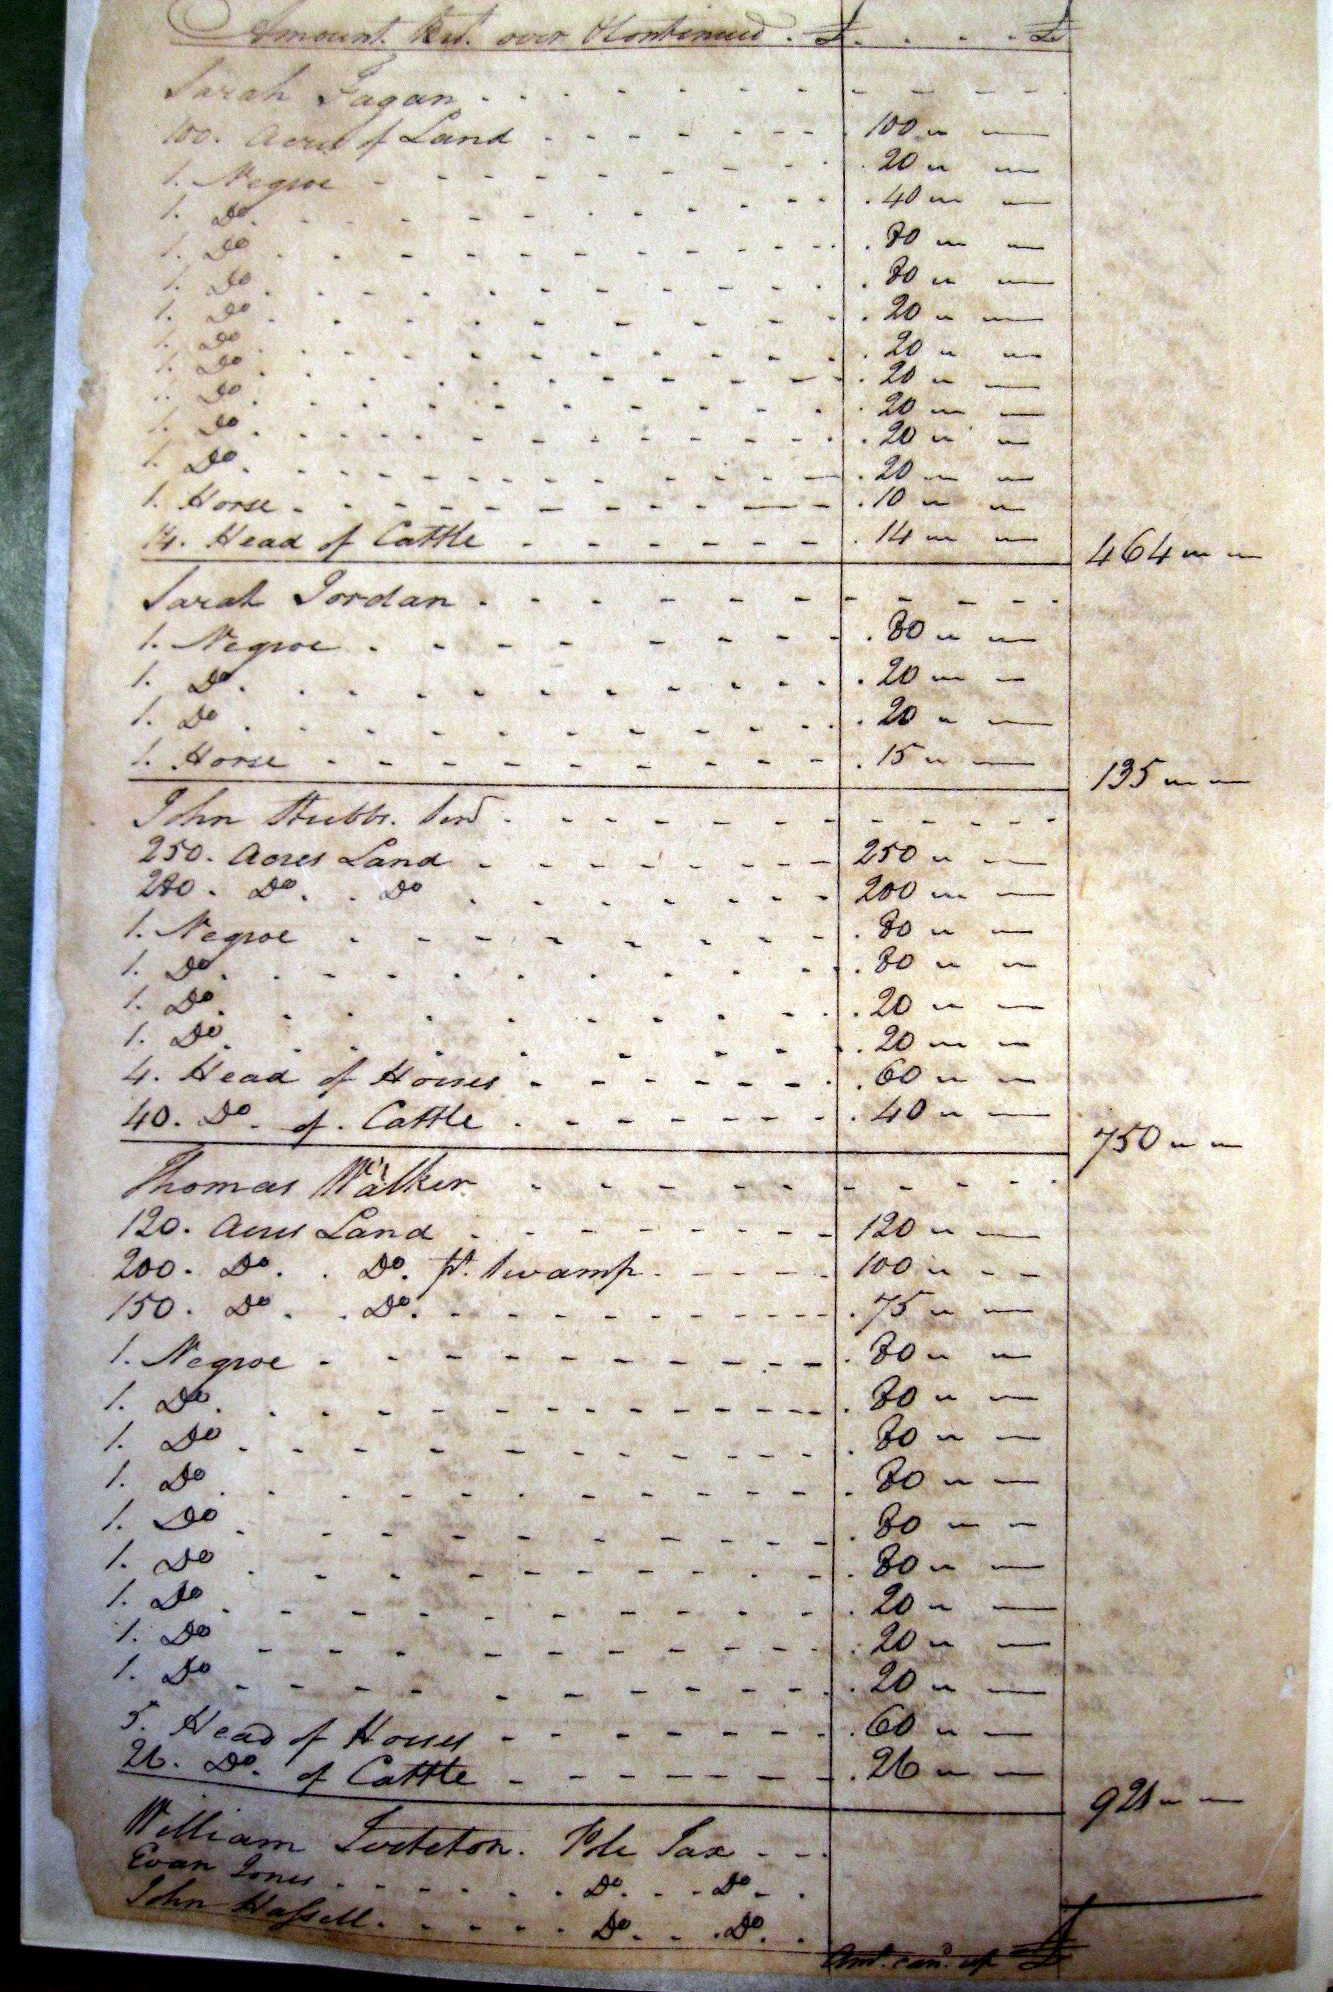 Amount Bt. over Continued . £ . . . . £
Sarah Fagan
100. Acres of Land 100 " —
1. Negroe 20 " —
1. Do 40 " —
1. Do 80 " —
1. Do 80 " —
1. Do 20 " —
1. Do 20 " —
1. Do 20 " —
1. Do 20 " —
1. Do 20 " —
1. Do 20 " —
1. Horse 10 " —
14. Head of Cattle 14 " — 464 " "
Sarah Jordan
1. Negroe 80 " —
1. Do 20 " —
1. Do 20 " —
1. Horse 15 " — 135 " "
John Stubbs. Senr
250. Acres Land 250 " —
200. Do. . Do 200 " —
1. Negroe 80 " —
1. Do 80 " —
1. Do 20 " —
1. Do 20 " —
4. Head of Horses 60 " —
40. Do. of. Cattle 40 " — 750 " "
Thomas Walker
120. Acres Land 120 " —
200. Do. . Do. pt. Swamp 100 " —
150. Do. . Do. 75 " —
1. Negroe 80 " —
1. Do 80 " —
1. Do 80 " —
1. Do 80 " —
1. Do 80 " —
1. Do 80 " —
1. Do 20 " —
1. Do 20 " —
1. Do 20 " —
5. Head of Horses 60 " —
26. Do. of Cattle 26 " — 921 " "
William Tooteton. Pole Tax
Evan Jones Do. Do.
John Hassell. Do. Do.
Amt. card. up £